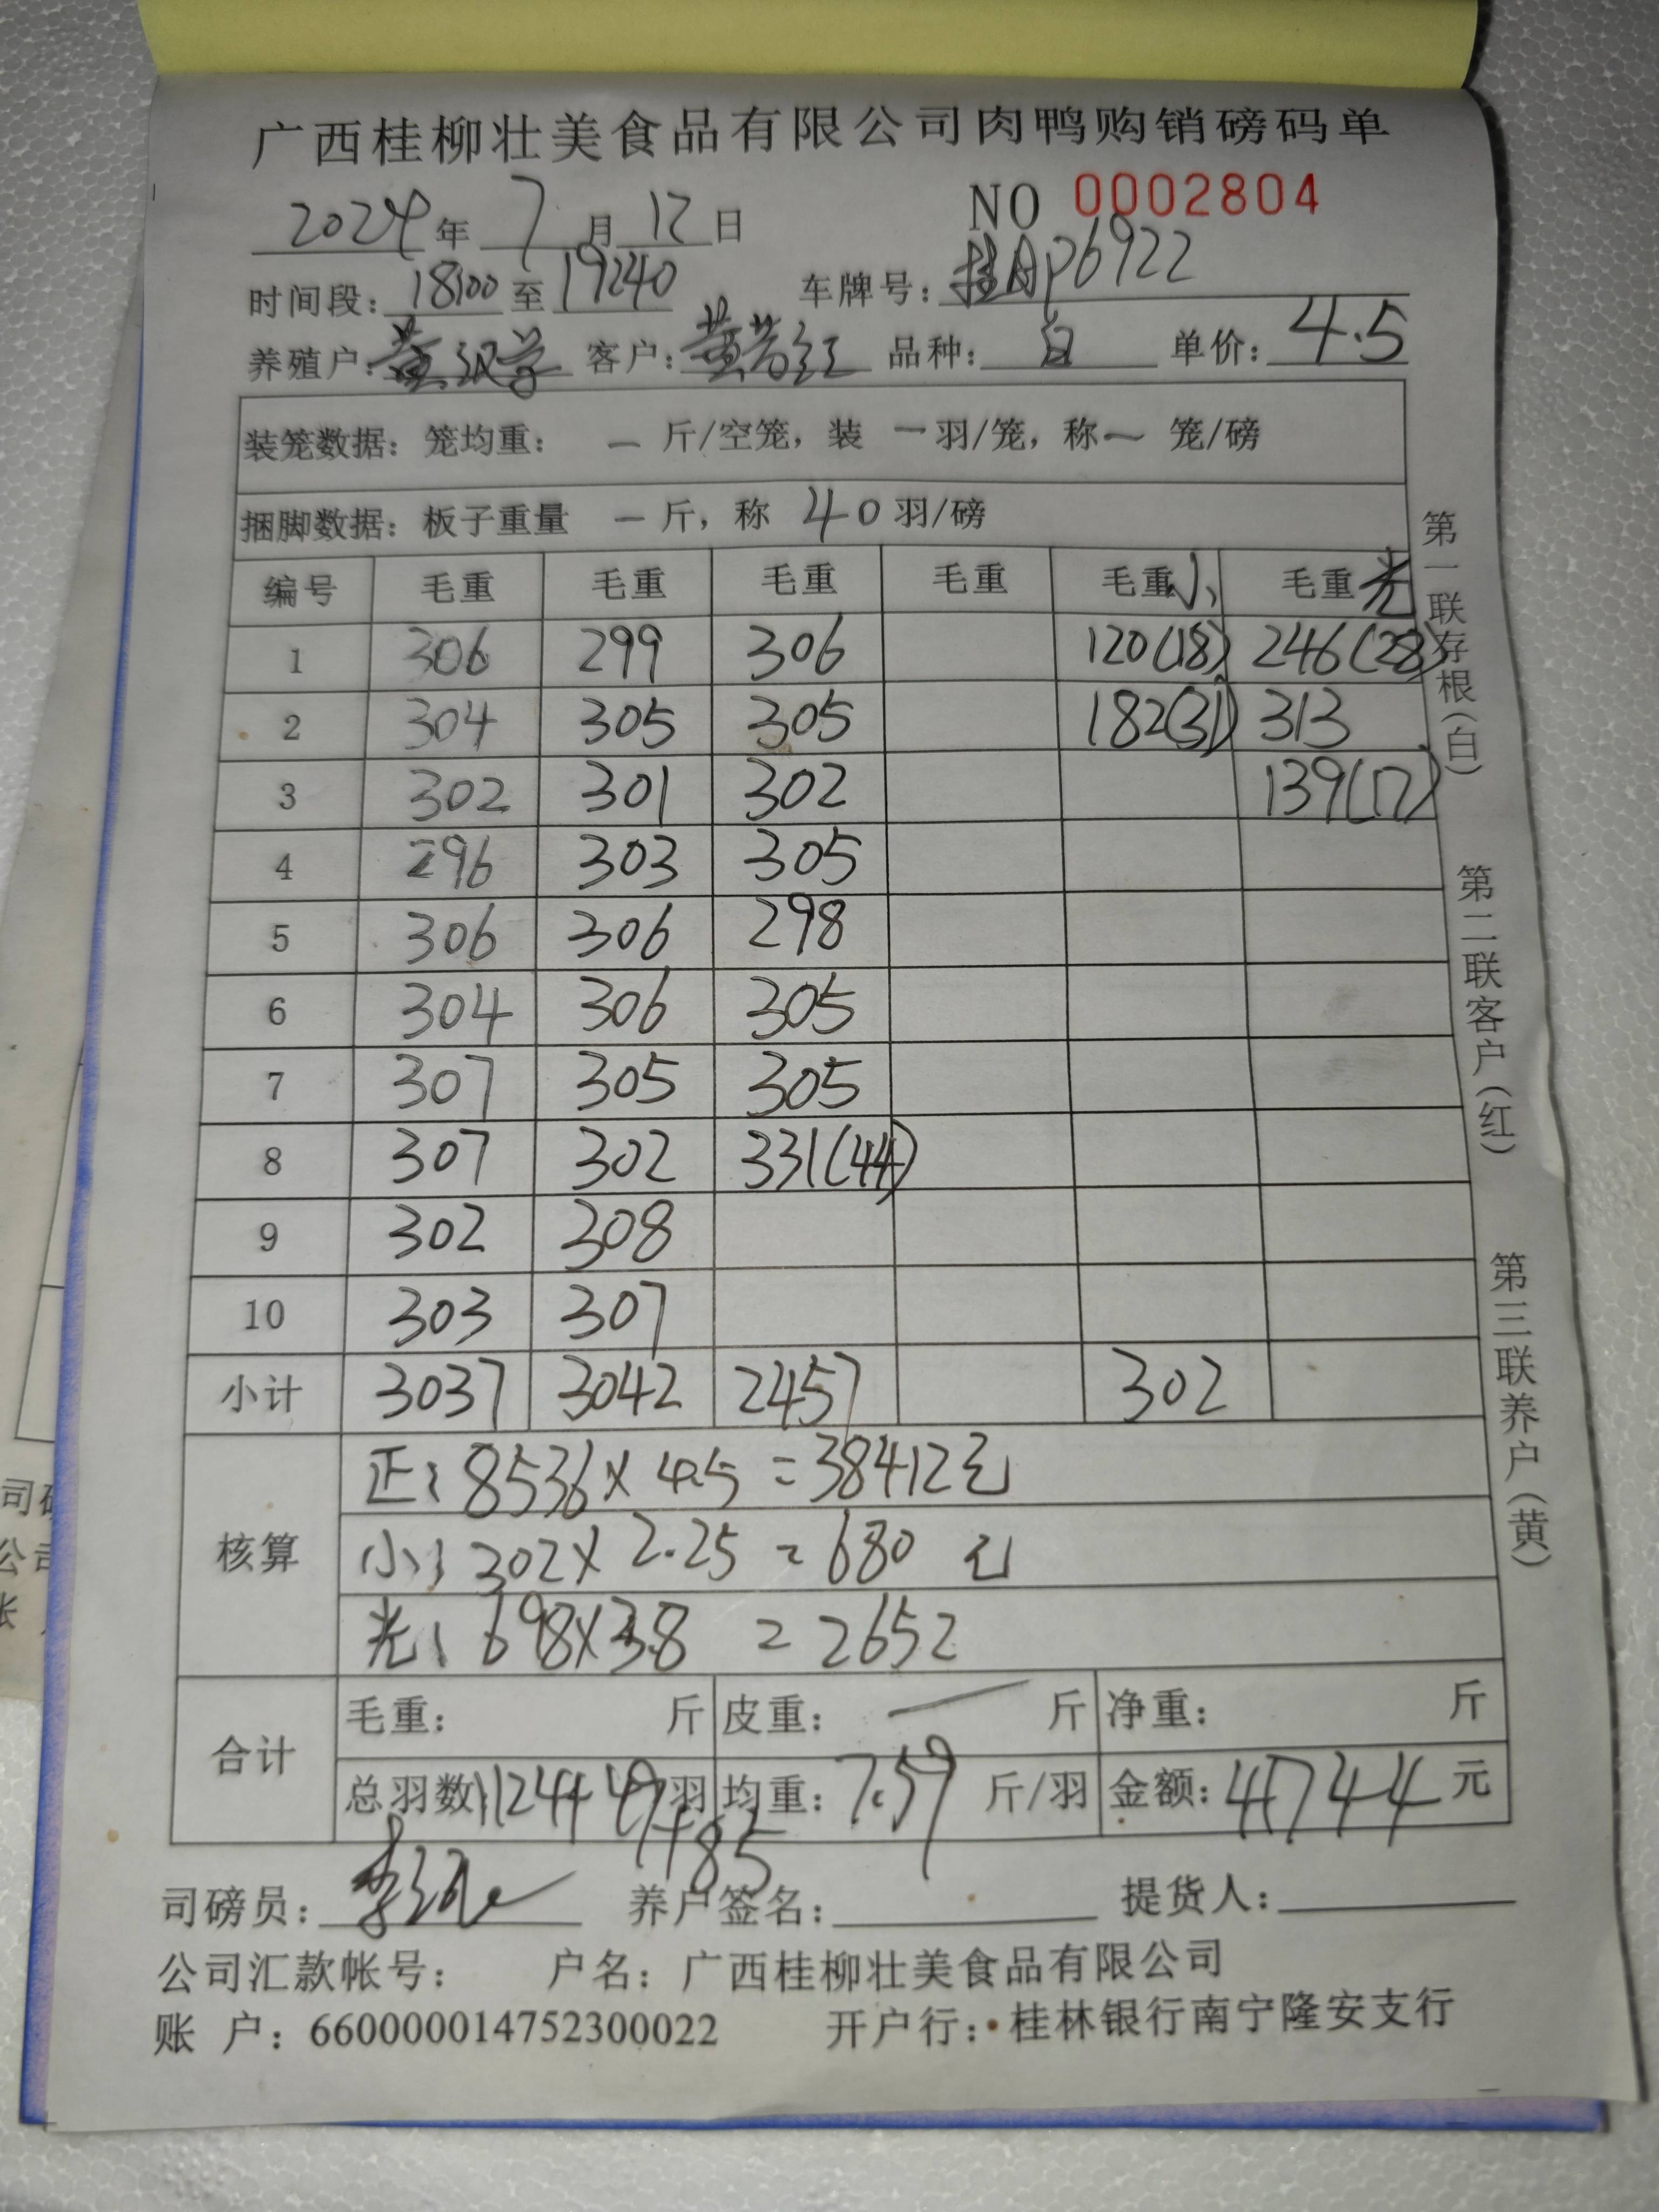 广西桂柳壮美食品有限公司肉鸭购销磅码单
2024年 7月 12日 NO 0002804
时间段：18:00 至 19:40 车牌号：桂AP6922
养殖户：黄汉学 客户：黄芳红 品种：白 单价：4.5
装笼数据：笼均重：— 斤/空笼，装 — 羽/笼，称 — 笼/磅
捆脚数据：板子重量 — 斤，称 40 羽/磅
编号 毛重 毛重 毛重 毛重 毛重小 毛重光
1 306 299 306 120(18) 246(28)
2 304 305 305 182(31) 313
3 302 301 302 139(17)
4 296 303 305
5 306 306 298
6 304 306 305
7 307 305 305
8 307 302 331(44)
9 302 308
10 303 307
小计 3037 3042 2457 302
核算
正：8536×4.5=38412元
小：302×2.25=680 元
光：698×3.8=2652
合计
毛重： 斤 皮重：— 斤 净重： 斤
总羽数：1124+49+85羽 均重：7.59 斤/羽 金额：41744元
司磅员： 养户签名： 提货人：
公司汇款帐号： 户名：广西桂柳壮美食品有限公司
账 户：660000014752300022 开户行：桂林银行南宁隆安支行
第一联存根(白) 第二联客户(红) 第三联养户(黄)